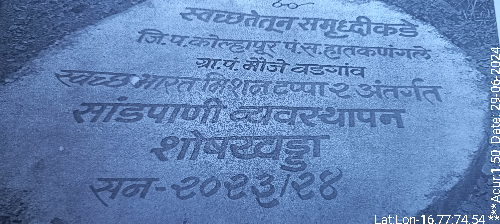 स्वच्छतेतून समृध्दीकडे
जि.प.कोल्हापूर पं.स.हातकणंगले
ग्रा.पं. मौजे वडगांव
स्वच्छ भारत मिशन टप्पा २ अंतर्गत
सांडपाणी व्यवस्थापन
शोषखड्डा
सन-२०२३/२४
Lat:Lon-16.77:74.54
***Accur:1.50, Date: 29-06-2024